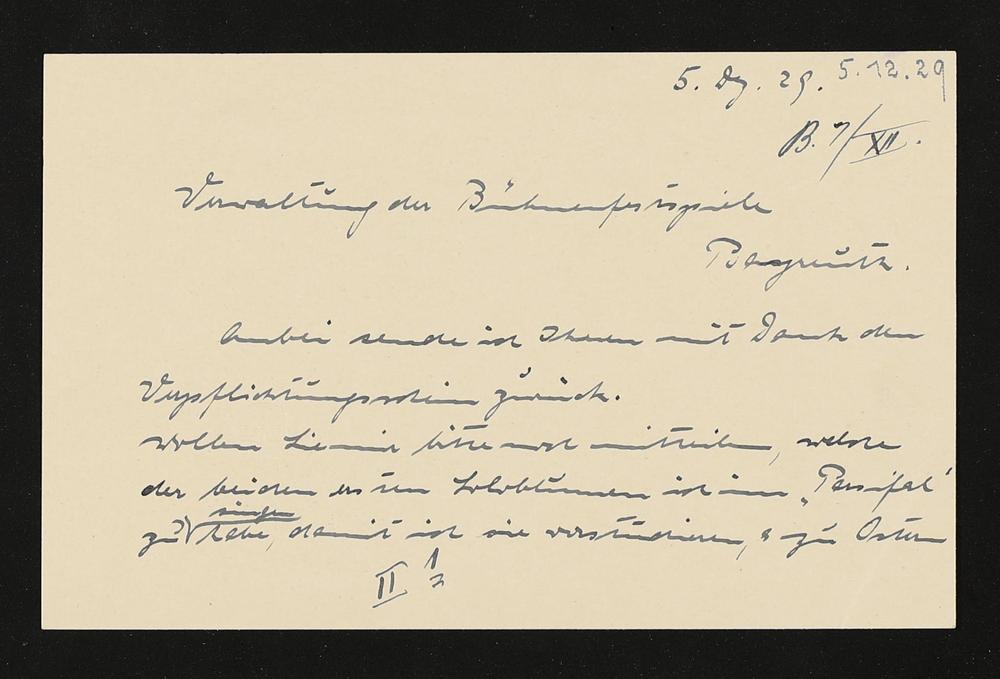 5. Dez. 29. 5.12.29
B. 7/XII.
Verwaltung der Bühnenfestspiele
Bayreuth.
Anbei sende ich Ihnen mit Dank den
Verpflichtungsschein zurück.
Wollen Sie mir bitte noch mitteilen, welche
der beiden ersten Soloblumen ich im „Parsifal"
singen
zu habe, damit ich sie vorstudieren, & zu Ostern
II 1/2